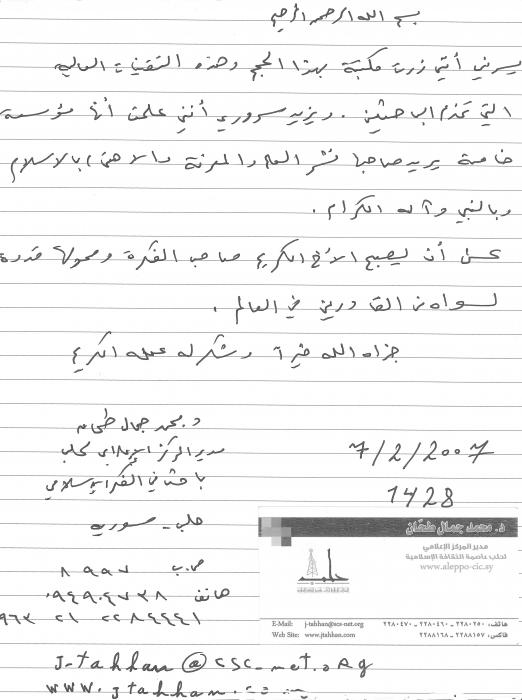 بسم الله الرحمن الرحيم
يسرني أني زرت مكتبة بهذا الحجم وهذه التقنيات العالية
التي تخدم الباحثين. ويزيد سروري أنني علمت أنها مؤسسة
خاصة يريد صاحبها نشر العلم والمعرفة والاهتمام بالاسلام
وبالنبي وآله الكرام.
عسى أن يصبح الأخ الكريم صاحب الفكرة وممولها قدوة
لسواه من القادرين في العالم.
جزاه الله خيراً وشكر له عمله الكريم
د. محمد جمال طحان
مدير المركز الإعلامي بحلب
باحث في الفكر الإسلامي
حلب - سورية
7/2/2007
1428
ص.ب ٨٩٩٧
هاتف
٩٦٣ ٢١ ٢٢٨٤٤٤١
J-tahhan@scs-net.org
www.jtahhan.com
د. محمد جمال طحّان
مدير المركز الإعلامي
لحلب عاصمة الثقافة الإسلامية
www.aleppo-cic.sy
حلب
هاتف: ٢٢٨٠٢٥٠ - ٢٢٨٠٤٦٠ - ٢٢٨٠٤٧٠
فاكس: ٢٢٨٨١٥٧ - ٢٢٨٨١٦٨
E-Mail: j-tahhan@scs-net.org
Web Site: www.jtahhan.com